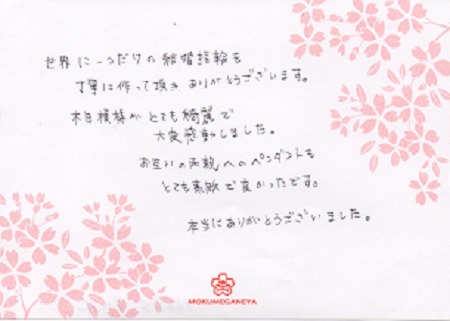 世界に一つだけの結婚指輪を
丁寧に作って頂き ありがとうございます。
木目模様がとても綺麗で
大変感動しました。
お互いの両親へのペンダントも
とても素敵で良かったです。
本当にありがとうございました。
MOKUMEGANEYA